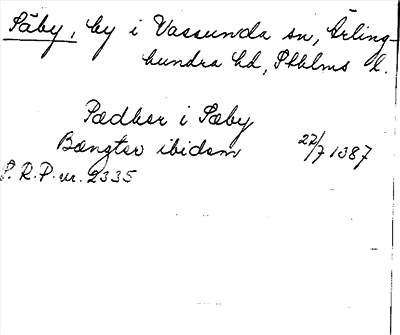 Säby, by i Vassunda sn, Ärling-
hundra hd, Sthlms l.
Pædhær i Sæby
Bængter ibidem 22/7 1387
S.R.P. nr. 2335